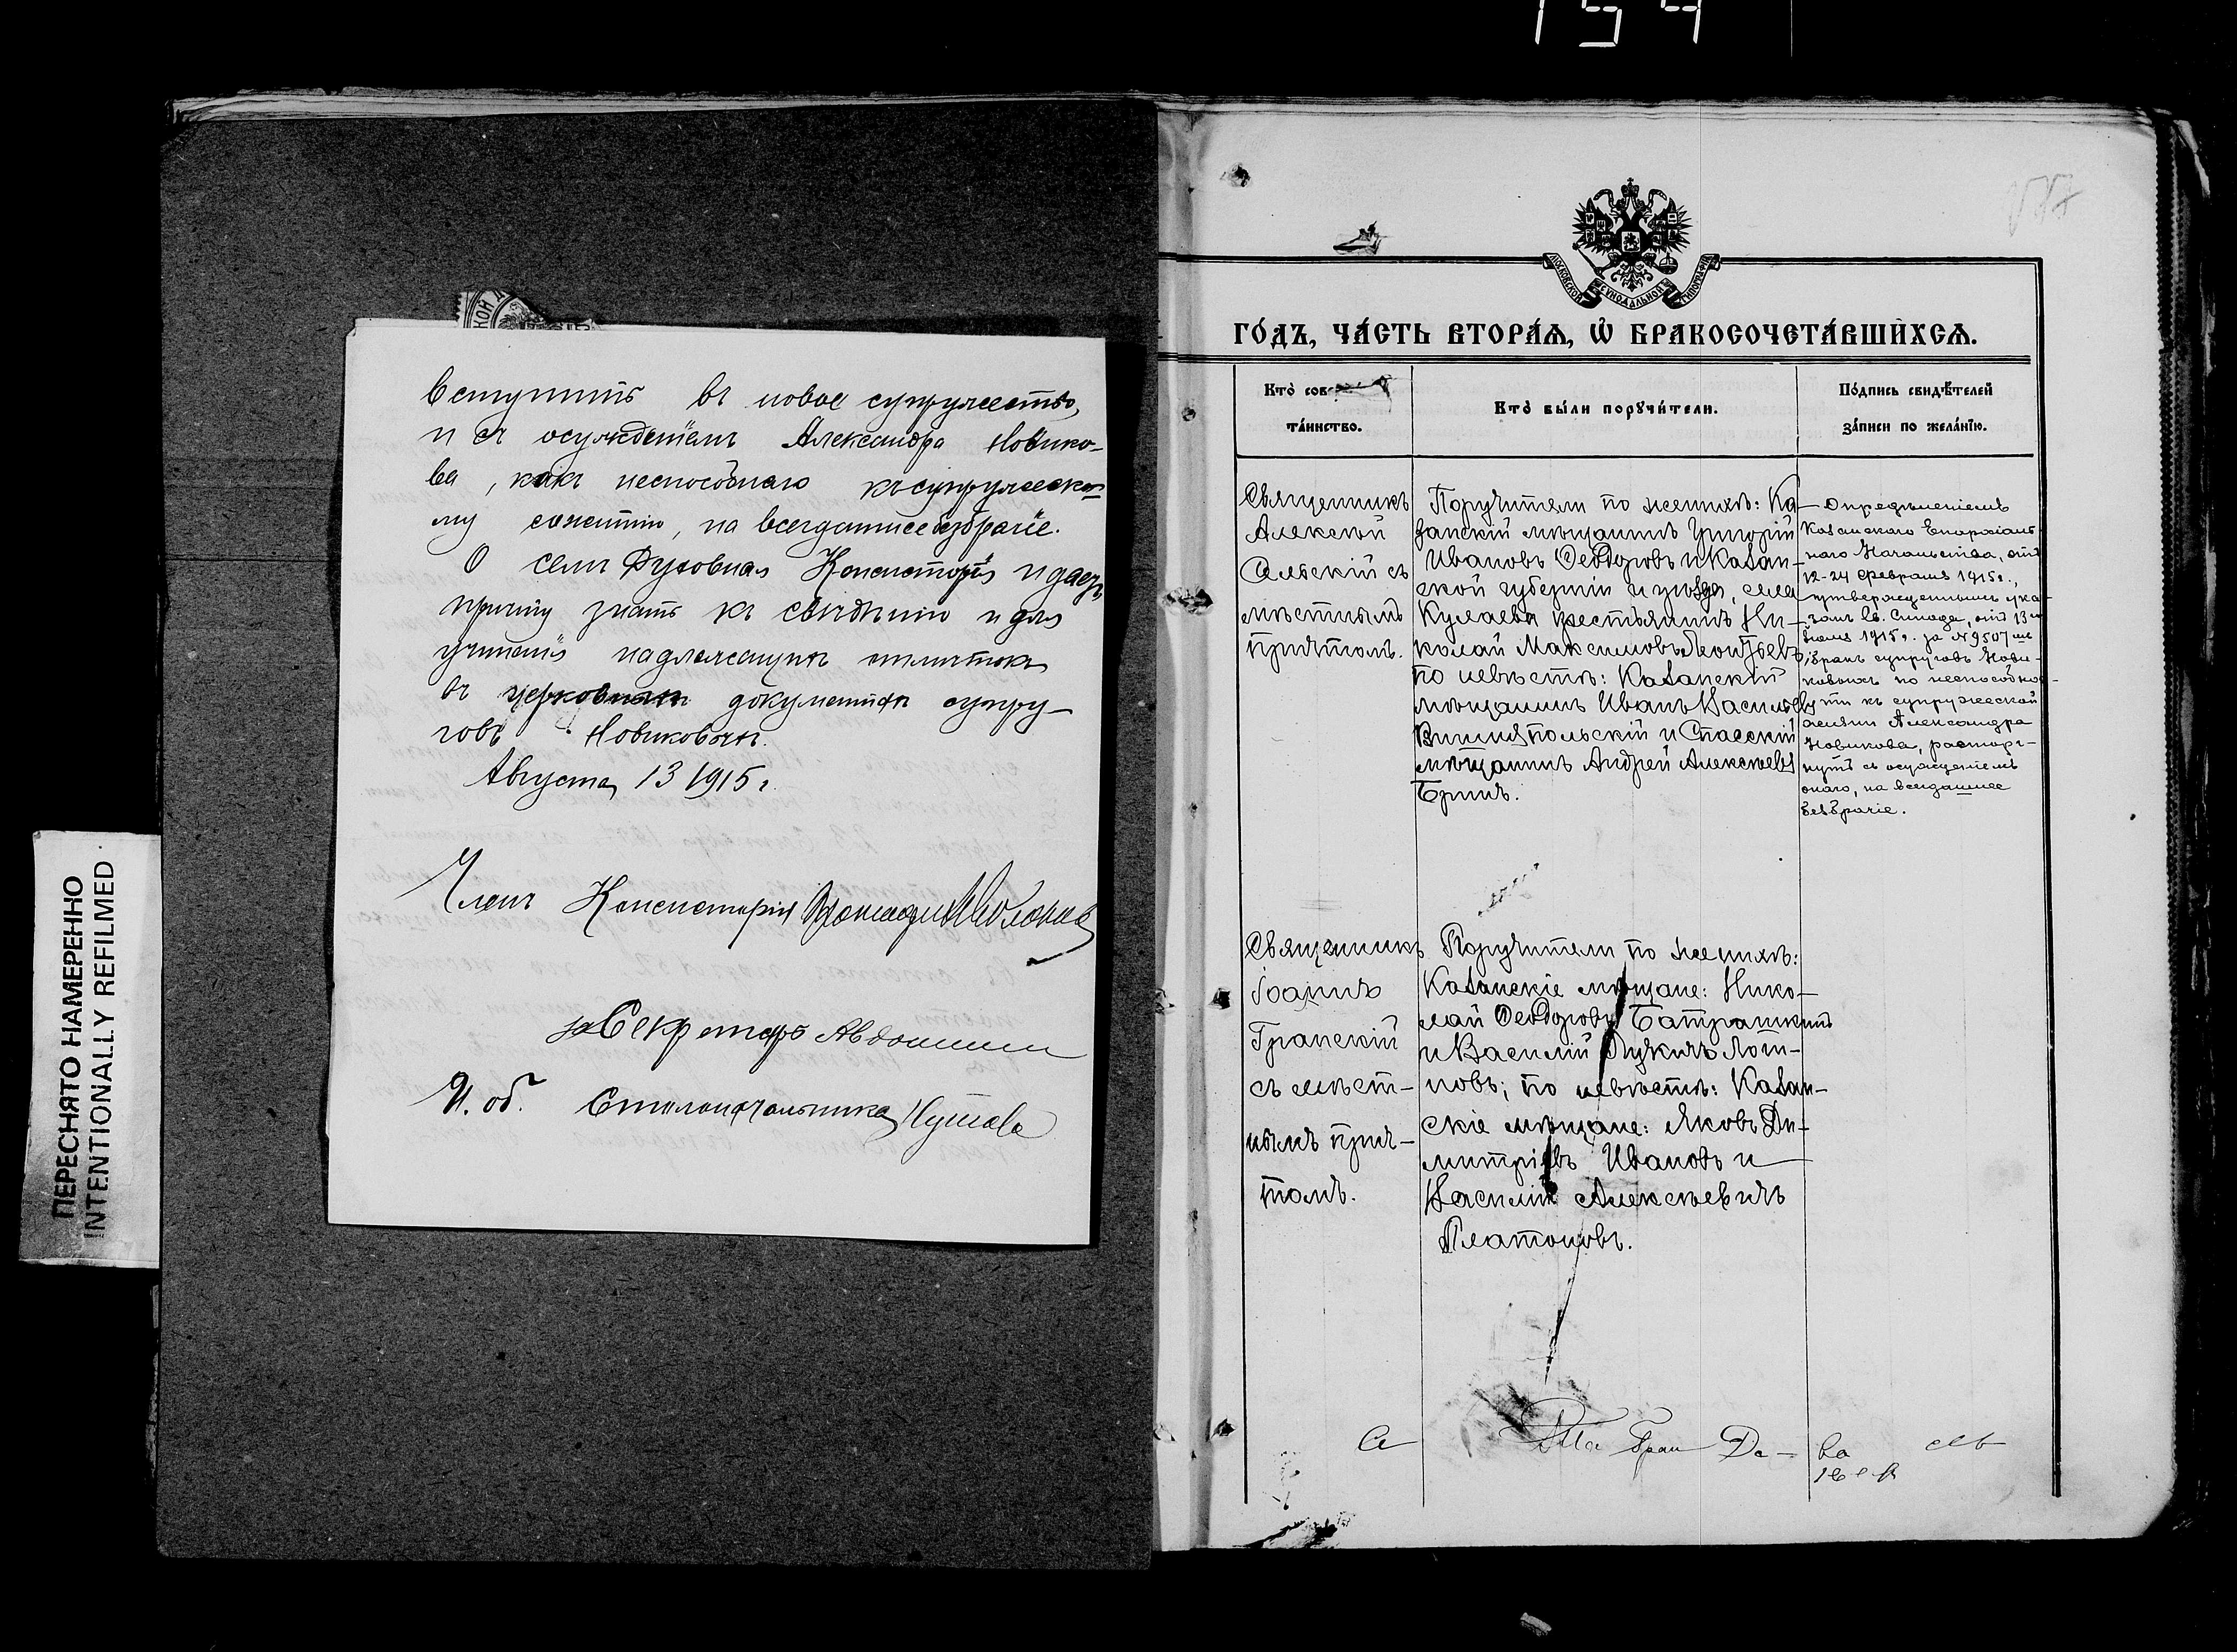 154
ПЕРЕСНЯТО НАМЕРЕННО
INTENTIONALLY REFILMED
вступить въ новое супружество,
и съ осужденіемъ Александра Новико-
ва, какъ неспособнаго къ супружеско-
му сожитію, на всегдашнее безбрачіе.
О семъ Духовная Консисторія и даетъ
причту знать къ свѣдѣнію и для
учиненія надлежащихъ отмѣтокъ
въ церковныхъ документахъ супру-
говъ Новиковыхъ.
Августа 13 1915 г.
Членъ Консисторіи
за Секретаря
И. об. Столоначальника
МОСКОВСКОЙ СѴНОДАЛЬНОЙ ТИПОГРАФІИ
ГО́ДЪ, ЧА́СТЬ ВТОРА́Ѧ, Ѡ҆ БРАКОСОЧЕТА́ВШИХСѦ.
Кто̀ сов
та́инство.
Кто̀ бы́ли порꙋчи́тели.
По́дпись свидѣ́телей
за́писи по жела́нїю.
Священникъ
Алексѣй
Сельскій съ
мѣстнымъ
причтомъ.
Поручители по женихѣ: Ка-
занскій мѣщанинъ Григорій
Ивановъ Ѳеодоровъ и Казан-
ской губерніи и уѣзда, села
Кулаева крестьянинъ Ни-
колай Максимовъ Леонтьевъ,
по невѣстѣ: Казанскій
мѣщанинъ Иванъ Васильевъ
и Спасскій
мѣщанинъ Андрей Алексѣевъ
Опредѣленіемъ
Казанскаго Епархіаль-
наго Начальства, отъ
12-24 февраля 1915 г.,
утвержденнымъ ука-
зомъ Св. Синода, отъ 13
іюля 1915 г. за № 9507
бракъ супруговъ Нови-
ковыхъ по неспособнос-
ти къ супружеской
жизни Александра
Новикова, расторг-
нутъ съ осужденіемъ
онаго, на всегдашнее
безбрачіе.
Священникъ
Іоаннъ
Гранскій
съ мѣст-
нымъ прич-
томъ.
Поручители по женихѣ:
Казанскіе мѣщане: Нико-
лай Ѳеодоровъ Батрашкинъ
и Василій Лукичъ Логи-
новъ; по невѣстѣ: Казан-
скіе мѣщане: Яковъ Ди-
митріевъ Ивановъ и
Василій Алексѣевичъ
Платоновъ.